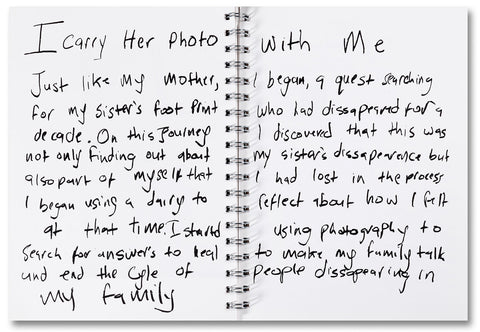 I Carry Her Photo With Me
Just like my mother, I began, a quest searching
for my sister's foot print who had dissapeared for a
decade. On this Journey I discovered that this was
not only finding out about my sister's dissapearence but
also part of myself that I had lost in the process
I began using a dairy to reflect about how I felt
at that time. I started using photography to
search for answer's to heal to make my family talk
and end the cyle of people dissapearing in
my family